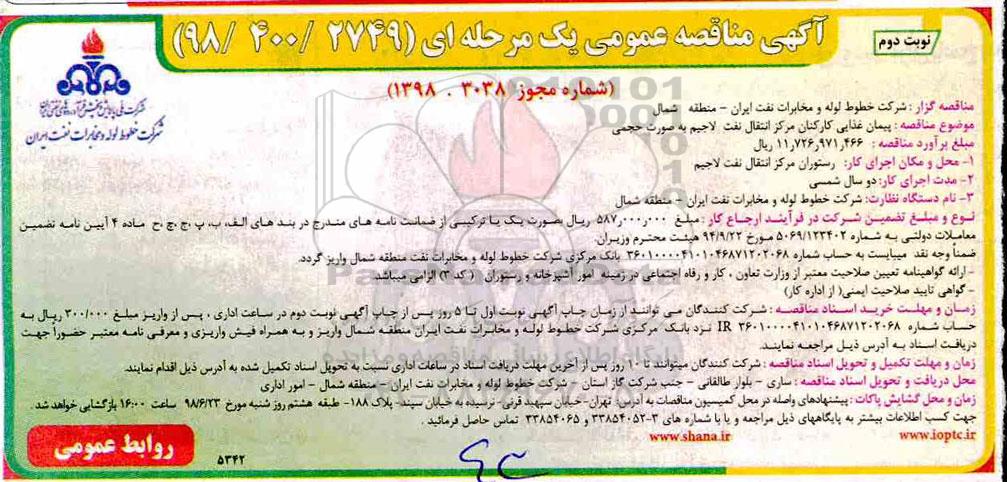 نوبت دوم
آگهی مناقصه عمومی یک مرحله ای (۲۷۴۹ /۴۰۰ /۹۸)
(شماره مجوز ۳۰۳۸ . ۱۳۹۸)
شرکت ملی پالایش و پخش فرآورده های نفتی ایران
شرکت خطوط لوله و مخابرات نفت ایران
مناقصه گزار : شرکت خطوط لوله و مخابرات نفت ایران - منطقه شمال
موضوع مناقصه : پیمان غذایی کارکنان مرکز انتقال نفت لاجیم به صورت حجمی
مبلغ برآورد مناقصه : ۱۱,۷۲۶,۹۷۱,۴۶۶ ریال
۱- محل و مکان اجرای کار: رستوران مرکز انتقال نفت لاجیم
۲- مدت اجرای کار: دو سال شمسی
۳- نام دستگاه نظارت: شرکت خطوط لوله و مخابرات نفت ایران - منطقه شمال
نوع و مبلغ تضمین شرکت در فرآیند ارجاع کار : مبلغ ۵۸۷,۰۰۰,۰۰۰ ریال بصورت یک یا ترکیبی از ضمانت نامه های مندرج در بند های الف، ب، پ ،ج ،چ ،ح ماده ۴ آیین نامه تضمین
معاملات دولتی به شماره ۵۰۶۹/۱۲۳۴۰۲ مورخ ۹۴/۹/۲۲ هیئت محترم وزیران.
ضمناً وجه نقد میبایست به حساب شماره ۳۶۰۱۰۰۰۰۴۱۰۱۰۴۶۸۷۱۲۰۲۰۶۸ بانک مرکزی شرکت خطوط لوله و مخابرات نفت منطقه شمال واریز گردد.
- ارائه گواهینامه تعیین صلاحیت معتبر از وزارت تعاون ، کار و رفاه اجتماعی در زمینه امور آشپزخانه و رستوران ( کد ۳) الزامی میباشد.
- گواهی تایید صلاحیت ایمنی( از اداره کار)
زمان و مهلت خرید اسناد مناقصه : شرکت کنندگان می توانند از زمان چاپ آگهی نوبت اول تا ۵ روز پس از چاپ آگهی نوبت دوم در ساعت اداری ، پس از واریز مبلغ ۳۰۰/۰۰۰ ریال به
حساب شماره IR ۳۶۰۱۰۰۰۰۴۱۰۱۰۴۶۸۷۱۲۰۲۰۶۸ نزد بانک مرکزی شرکت خطوط لوله و مخابرات نفت ایران منطقه شمال واریز و به همراه فیش واریزی و معرفی نامه معتبر حضوراً جهت
دریافت اسناد به آدرس ذیل مراجعه نمایند.
زمان و مهلت تکمیل و تحویل اسناد مناقصه : شرکت کنندگان میتوانند تا ۱۰ روز پس از آخرین مهلت دریافت اسناد در ساعات اداری نسبت به تحویل اسناد تکمیل شده به آدرس ذیل اقدام نمایند.
محل دریافت و تحویل اسناد مناقصه : ساری - بلوار طالقانی - جنب شرکت گاز استان - شرکت خطوط لوله و مخابرات نفت ایران - منطقه شمال - امور اداری
زمان و محل گشایش پاکات : پیشنهادهای واصله در محل کمیسیون مناقصات به آدرس: تهران- خیابان سپهبد قرنی- نرسیده به خیابان سپند- پلاک ۱۸۸- طبقه هشتم روز شنبه مورخ ۹۸/۶/۲۳ ساعت ۱۶:۰۰ بازگشایی خواهد شد .
جهت کسب اطلاعات بیشتر به پایگاههای ذیل مراجعه و یا با شماره های ۳-۳۳۸۵۴۰۵۲ و ۳۳۸۵۴۰۶۵ تماس حاصل فرمائید .
www.shana.ir www.ioptc.ir
روابط عمومی
۵۳۴۲